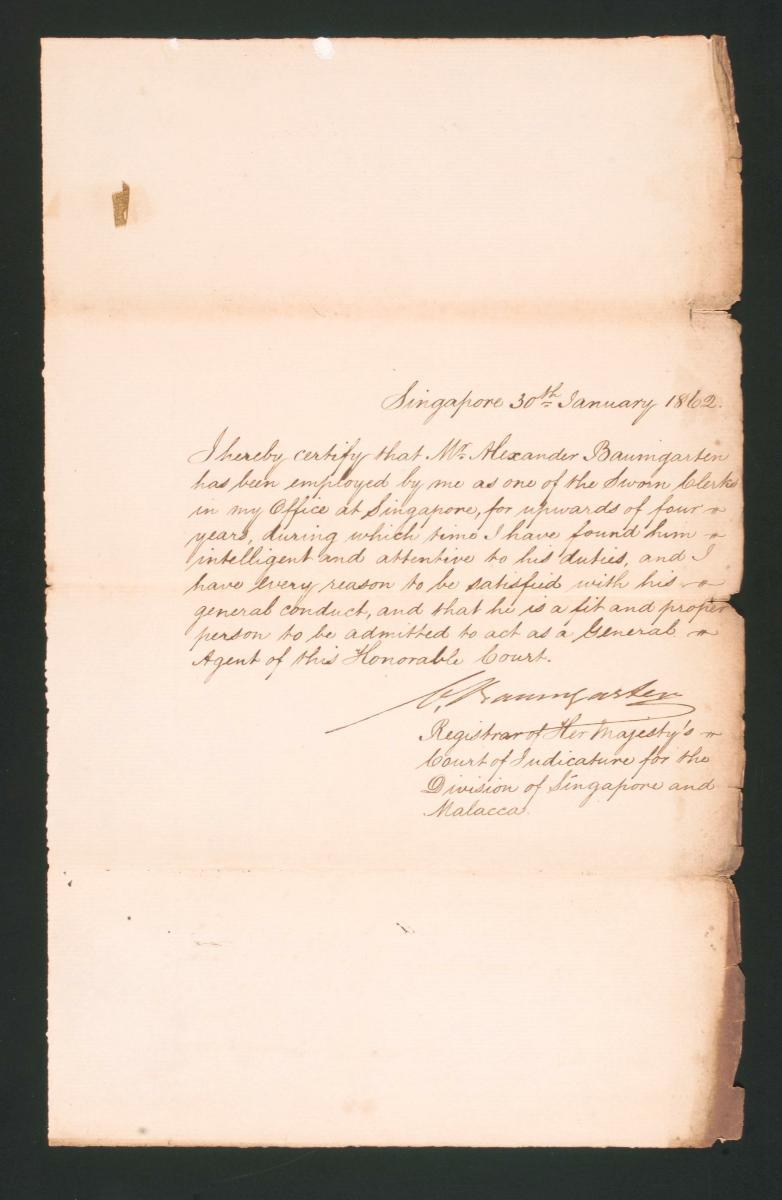 Singapore 30th January 1862.
I hereby certify that Mr. Alexander Baumgarten
has been employed by me as one of the Sworn Clerks
in my Office at Singapore, for upwards of four
years, during which time I have found him
intelligent and attentive to his duties, and I
have every reason to be satisfied with his
general conduct, and that he is a fit and proper
person to be admitted to act as a General
Agent of this Honorable Court.
C. Baumgarten
Registrar of Her Majesty's
Court of Judicature for the
Division of Singapore and
Malacca.